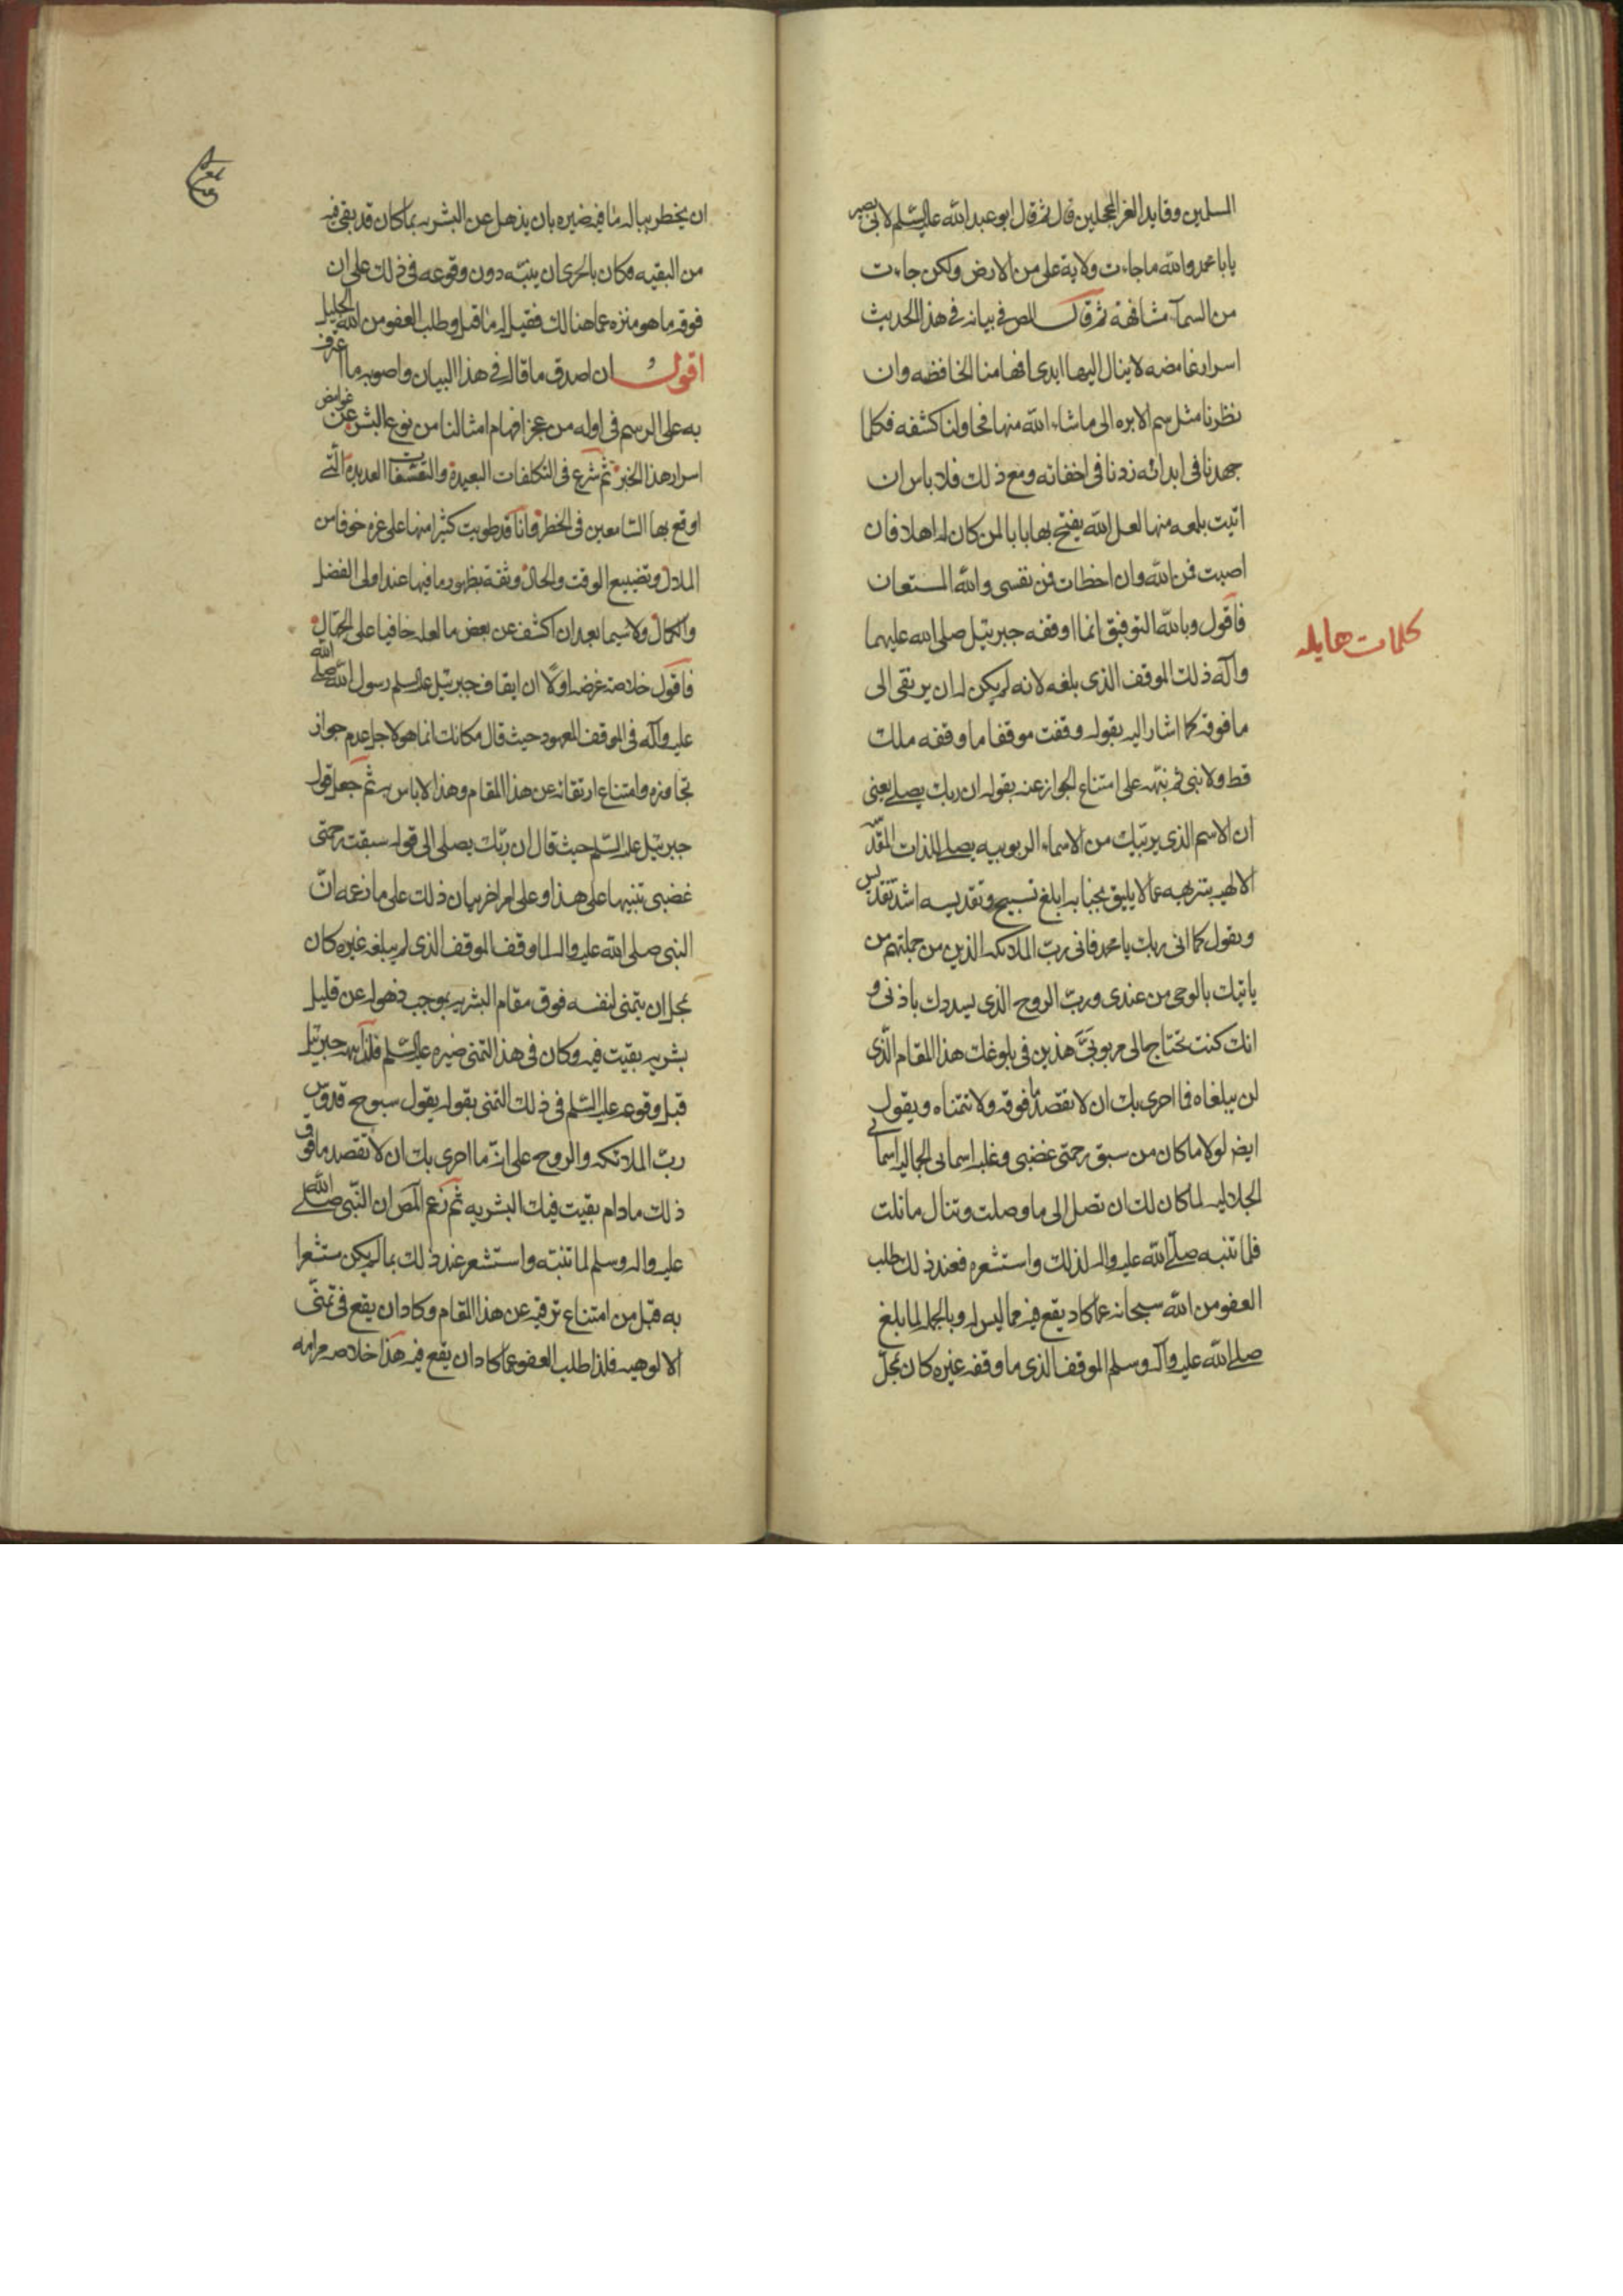 السلمين وقايد الغر المحجلين قال ثم قال ابو عبد الله عليه السّلم لابى بصير
يابا محمد والله ماجاءت ولاية على من الارض ولكن جاءت
من السمآء مشافهة ثم قال المص فى بيانه فى هذا الحديث
اسرار غامضه لا ينال اليها ايدى افهامنا الخافظه وان
نظرنا مثل سم الابره الى ماشاء الله منها فحاولنا كشفه فكلما
جهدنا فى ابدائه زدنا فى اخفائه ومع ذلك فلا باس ان
اتيت بلمعه منها لعل الله يفتح بها بابا لمن كان له اهلا فان
اصبت فمن الله وان اخطات فمن نفسى والله المستعان
فاقول وبالله التوفيق انما اوقفه جبرئيل صلى الله عليهما
وآله ذلك الموقف الذى بلغه لانه لم يكن له ان يرتقى الى
كلمات هايله
ما فوقه كما اشار اليه بقوله وقفت موقفا ما وقفه ملك
قط ولا نبى ثم نبّهه على امتناع الجواز عنه بقوله ان ربك يصلى يعنى
ان الاسم الذى يربّيك من الاسماء الربوبيه يصلى للذات المقدّسه
الالهيه بتنزيهه عما لا يليق بجنابه ابلغ تسبيح وتقديسه اشدّ تقديس
ويقول كما انى ربك يا محمد فانى ربّ الملائكه الذين من جملتهم من
ياتيك بالوحى من عندى وربّ الروح الذى يسددك باذنى و
انك كنت تحتاج الى مربوبىّ هذين فى بلوغك هذا المقام الّذى
لن يبلغاه فما احرى بك ان لا تقصد ما فوقه ولا تتمناه ويقول
ايضا لولا ما كان من سبق رحمتى غضبى وغلبه اسمايى الجماليه اسمائى
الجلاليه لما كان لك ان تصل الى ما وصلت وتنال ما نلت
فلما تنبه صلّى الله عليه واله لذلك واستشعره فعند ذلك طلب
العفو من الله سبحانه عما كاد يقع فيه مما ليس له وبالجمله لما بلغ
صلى الله عليه وآله وسلم الموقف الذى ما وقفه غيره كان بمحلّ
ان يخطر بباله ما فيه ضيره بان يذهل عن البشريه بما كان قد بقى فيه
من البقيه وكان بالحرى ان ينبّه دون وقوعه فى ذلك على ان
فوقه ما هو منزه عما هنالك فقيل له ما قيل وطلب العفو من الله الجليل
اقول ان اصدق ما قاله فى هذا البيان واصوبه ما اعترف
به على الرسم فى اوله من عجز افهام امثالنا من نوع البشر عن غوامض
اسرار هذا الخبر ثم شرع فى التكلفات البعيدة والتعسّفات العديدة الّتى
اوقع بها السّامعين فى الخطر وانا قد طويت كثيرا منها على غره خوفا من
الملال وتضييع الوقت والحال وثقة بظهور ما فيها عند اولى الفضل
والكمال ولا سيما بعد ان اكشف عن بعض ما لعله خافيا على الجهّال
فاقول خلاصة غرضه اولًا ان ايقاف جبرئيل عليه السلم رسول الله صلى الله
عليه وآله فى الموقف المعهود حيث قال مكانك انما هو لاجل عدم جواز
تجاوزه وامتناع ارتقائه عن هذا المقام وهذا لا باس به ثم جعل قول
جبرئيل عليه السّلم حيث قال ان ربّك يصلى الى قوله سبقت رحمتى
غضبى تنبيها على هذا وعلى امر اخر بيان ذلك على ما زعمه انّ
النبى صلى الله عليه واله لما وقف الموقف الذى لم يبلغه غيره كان
بمحل ان يتمنى لنفسه فوق مقام البشريه بموجب ذهوله عن قليل
بشريه بقيت فيه وكان فى هذا التمنى ضيره عليه السّلم فلذا نبهه جبرئيل
قبل وقوعه عليه السّلم فى ذلك التمنى بقوله يقول سبوح قدوس
ربّ الملائكه والروح على انّه ما احرى بك ان لا تقصد ما فوق
ذلك مادام بقيت فيك البشريه ثم زعم المص ان النّبى صلى الله
عليه واله وسلم لما تنبّه واستشعر عند ذلك بما لم يكن مستشعرا
به قبل من امتناع ترقيه عن هذا المقام وكاد ان يقع فى تمنّى
الالوهيه فلذا طلب العفو عما كاد ان يقع فيه هذا خلاصه مرامه